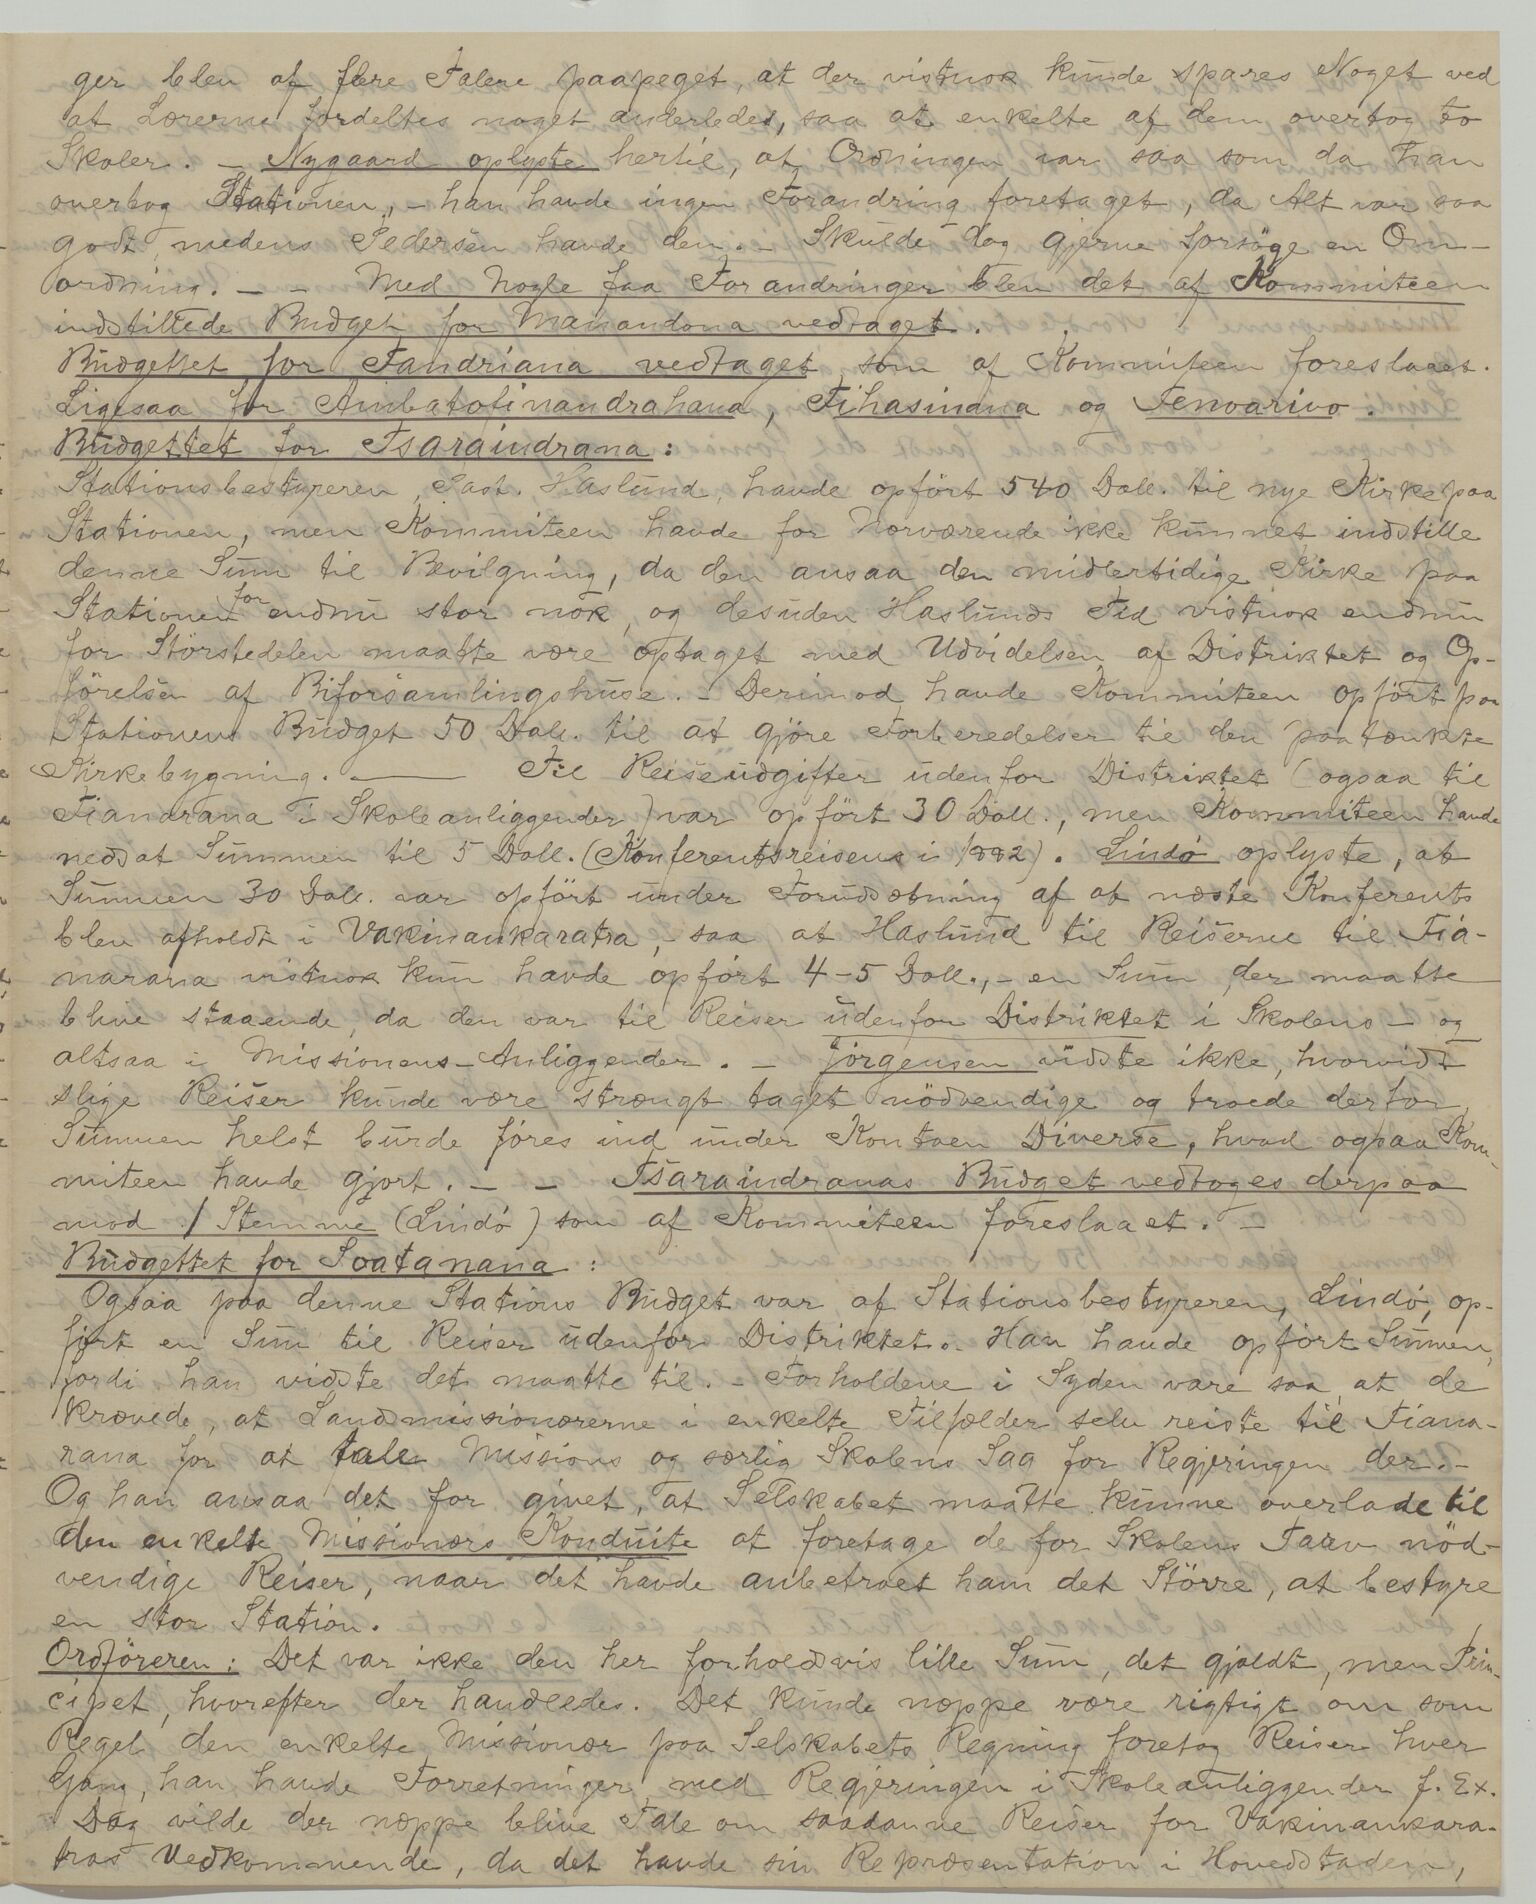 ger blev af flere Talere paapeget, at der vistnok kunde spares Noget ved
at Lærerne fordeltes noget anderledes, saa at enkelte af dem overtog to
Skoler. – Nygaard oplyste hertil, at Ordningen var saa som da han
overtog Stationen, – han havde ingen Forandring foretaget, da Alt var saa
godt, medens Pedersen havde den. – Skulde dog gjerne forsöge en Om-
ordning. – – Med nogle faa Forandringer blev det af Kommiteen
indstillede Budget for Manandona vedtaget.
Budgettet for Fandriana vedtaget som af Kommiteen foreslaaet.
Ligesaa for Ambatofinandrahana, Fihasinana og Fenoarivo.
Budgettet for Tsaraindrana:
Stationsbestyreren, Past. Haslund, havde opfört 540 Doll. til nye Kirke paa
Stationen, men Kommiteen havde for Nærværende ikke kunnet indstille
denne Sum til Bevilgning, da den ansaa den midlertidige Kirke paa
Stationen for endnu stor nok, og desuden Haslunds Tid vistnok endnu
for Störstedelen maatte være optaget med Udvidelsen af Distriktet og Op-
förelsen af Biforsamlingshuse. – Derimod havde Kommiteen opfört paa
Stationens Budget 50 Doll. til at gjöre Forberedelser til den paatænkte
Kirkebygning. — Til Reiseudgifter udenfor Distriktet (ogsaa til
Fianarana i Skoleanliggender) var opfört 30 Doll., men Kommiteen havde
nedsat Summen til 5 Doll. (Konferentsreisens i 1882). Lindö oplyste, at
Summen 30 Doll. var opfört under Forudsætning af at næste Konferents
blev afholdt i Vakinankaratra, – saa at Haslund til Reiserne til Fia-
narana vistnok kun havde opfört 4–5 Doll., – en Sum, der maatte
blive staaende, da den var til Reiser udenfor Distriktet i Skolens – og
altsaa i Missionens – Anliggender. – Jörgensen vidste ikke, hvorvidt
slige Reiser kunde være strængt taget nödvendige og troede derfor
Summen helst burde föres ind under Kontoen Diverse, hvad ogsaa Kom-
miteen havde gjort. – – Tsaraindranas Budget vedtoges derpaa
mod 1 Stemme (Lindö) som af Kommiteen foreslaaet. –
Budgettet for Soatanana:
Ogsaa paa denne Stations Budget var af Stationsbestyreren, Lindö, op-
fört en Sum til Reiser udenfor Distriktet. Han havde opfört Summen,
fordi han vidste det maatte til. – Forholdene i Syden vare saa, at de
krævede, at Landmissionærerne i enkelte Tilfælder selv reiste til Fiana-
rana for at tale Missions og særlig Skolens Sag for Regjeringen der. –
Og han ansaa det for givet, at Selskabet maatte kunne overlade til
den enkelte Missionærs Konduite at foretage de for Skolens Tarv nöd-
vendige Reiser, naar det havde anbetroet ham det Större, at bestyre
en stor Station.
Ordföreren: Det var ikke den her forholdsvis lille Sum, det gjaldt, men Prin-
cipet, hvorefter der handledes. Det kunde næppe være rigtigt, om som
Regel den enkelte Missionær paa Selskabets Regning foretog Reiser hver
Gang, han havde Forretninger med Regjeringen i Skoleanliggender f. Ex.
Dog vilde der næppe blive Tale om saadanne Reiser for Vakinankara-
tras Vedkommende, da det havde sin Repræsentation i Hovedstaden,